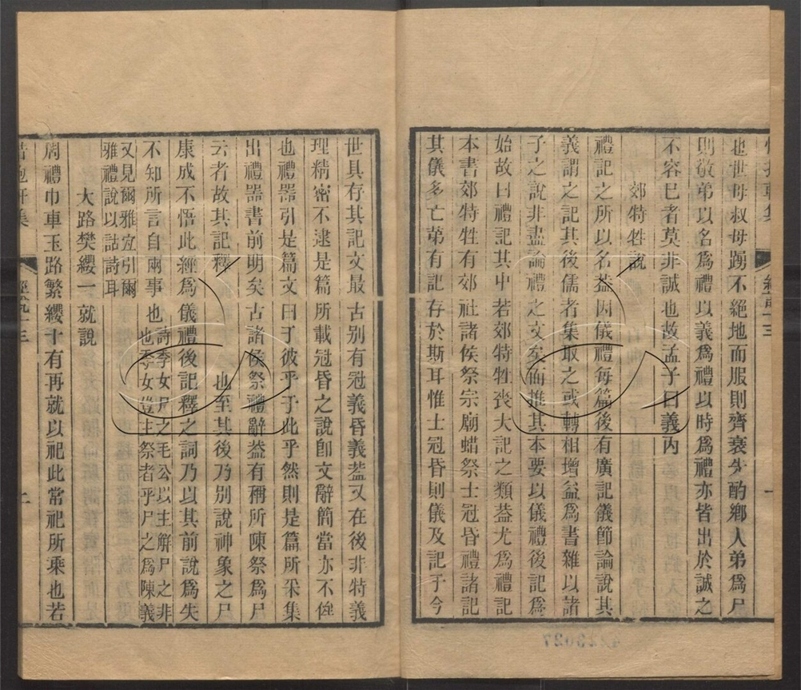 惜抱軒集
經說十三
也世母叔母踊不絕地而服則齊衰先酌鄉人弟為尸
則敬弟以名為禮以義為禮以時為禮亦皆出於誠之
不容已者莫非誠也故孟子曰義內
郊特牲說
禮記之所以名葢因儀禮每篇後有廣記儀節論說其
義謂之記其後儒者集取之或轉相增益為書雜以諸
子之說非盡論禮之文矣而推其本要以儀禮後記為
始故曰禮記其中若郊特牲喪大記之類葢尤為禮記
本書郊特牲有郊社諸侯祭宗廟蜡祭士冠昏禮諸記
其儀多亡第有記存於斯耳惟士冠昏則儀及記于今
世具存其記文最古別有冠義昏義葢又在後非特義
理精密不逮是篇所載冠昏之說卽文辭簡當亦不侔
也禮器引是篇文曰于彼乎于此乎然則是篇所采集
出禮器書前明矣古諸侯祭禮辭葢有稱所陳祭為尸
云者故其記釋 也至其後乃別說神象之尸
康成不悟此經為儀禮後記釋之詞乃以其前說為失
不知所言自兩事也詩季女尸之毛公以主解尸之非
也季女豈主祭者乎尸之為陳義
又見爾雅宜引爾
雅禮說以詁詩耳
大路樊纓一就說
周禮巾車玉路繁纓十有再就以祀此常祀所乘也若
惜抱軒集
經說十三
二